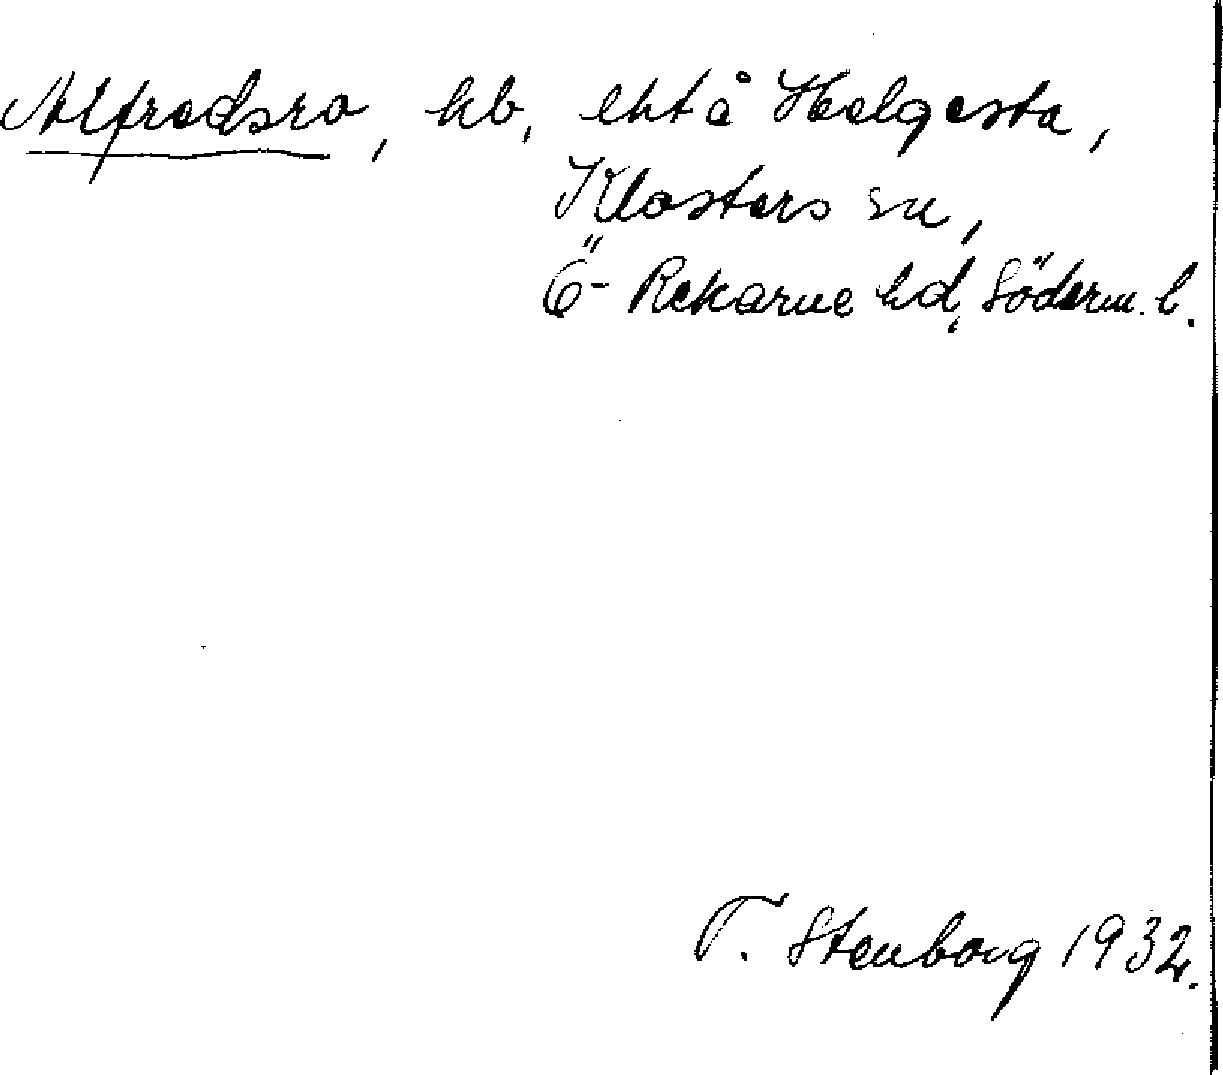 Alfredsro, hb, lht å Helgesta,
Klosters sn,
Ö- Rekarne hd, Söderm. l.
F. Stenborg 1932.